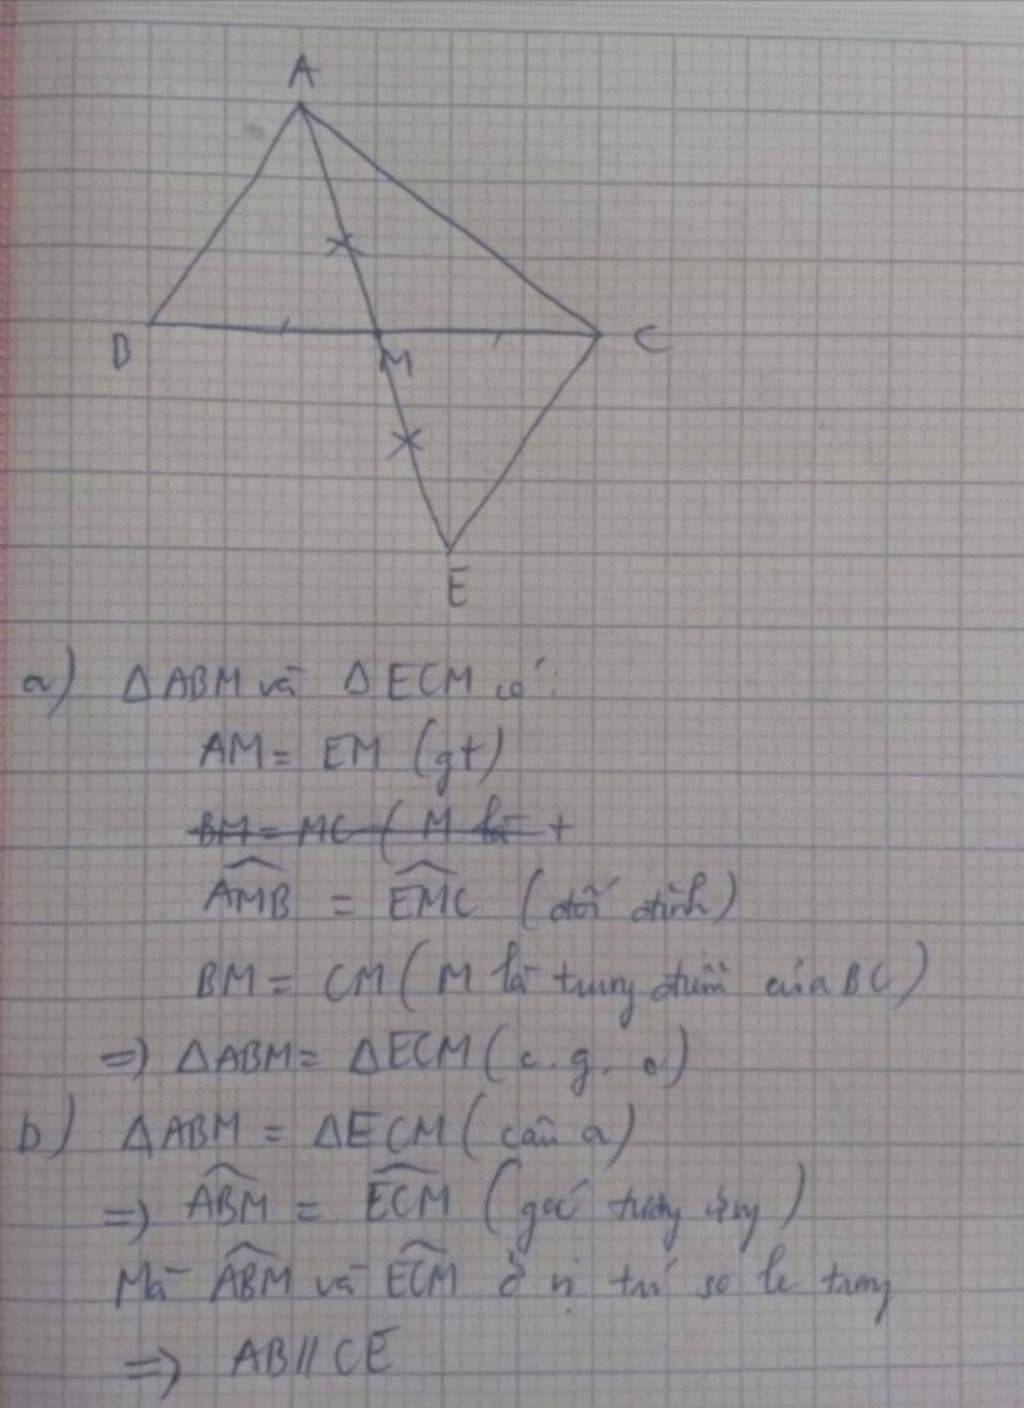 A
B
M
C
E
a) ΔABM và ΔECM có:
AM = EM (gt)
BM = MC ( M là +
$\widehat{AMB}$ = $\widehat{EMC}$ (đối đỉnh)
BM = CM ( M là trung điểm của BC)
=> ΔABM = ΔECM (c.g.c)
b) ΔABM = ΔECM (câu a)
=> $\widehat{ABM}$ = $\widehat{ECM}$ (góc tương ứng)
Mà $\widehat{ABM}$ và $\widehat{ECM}$ ở vị trí so le trong
=> AB // CE